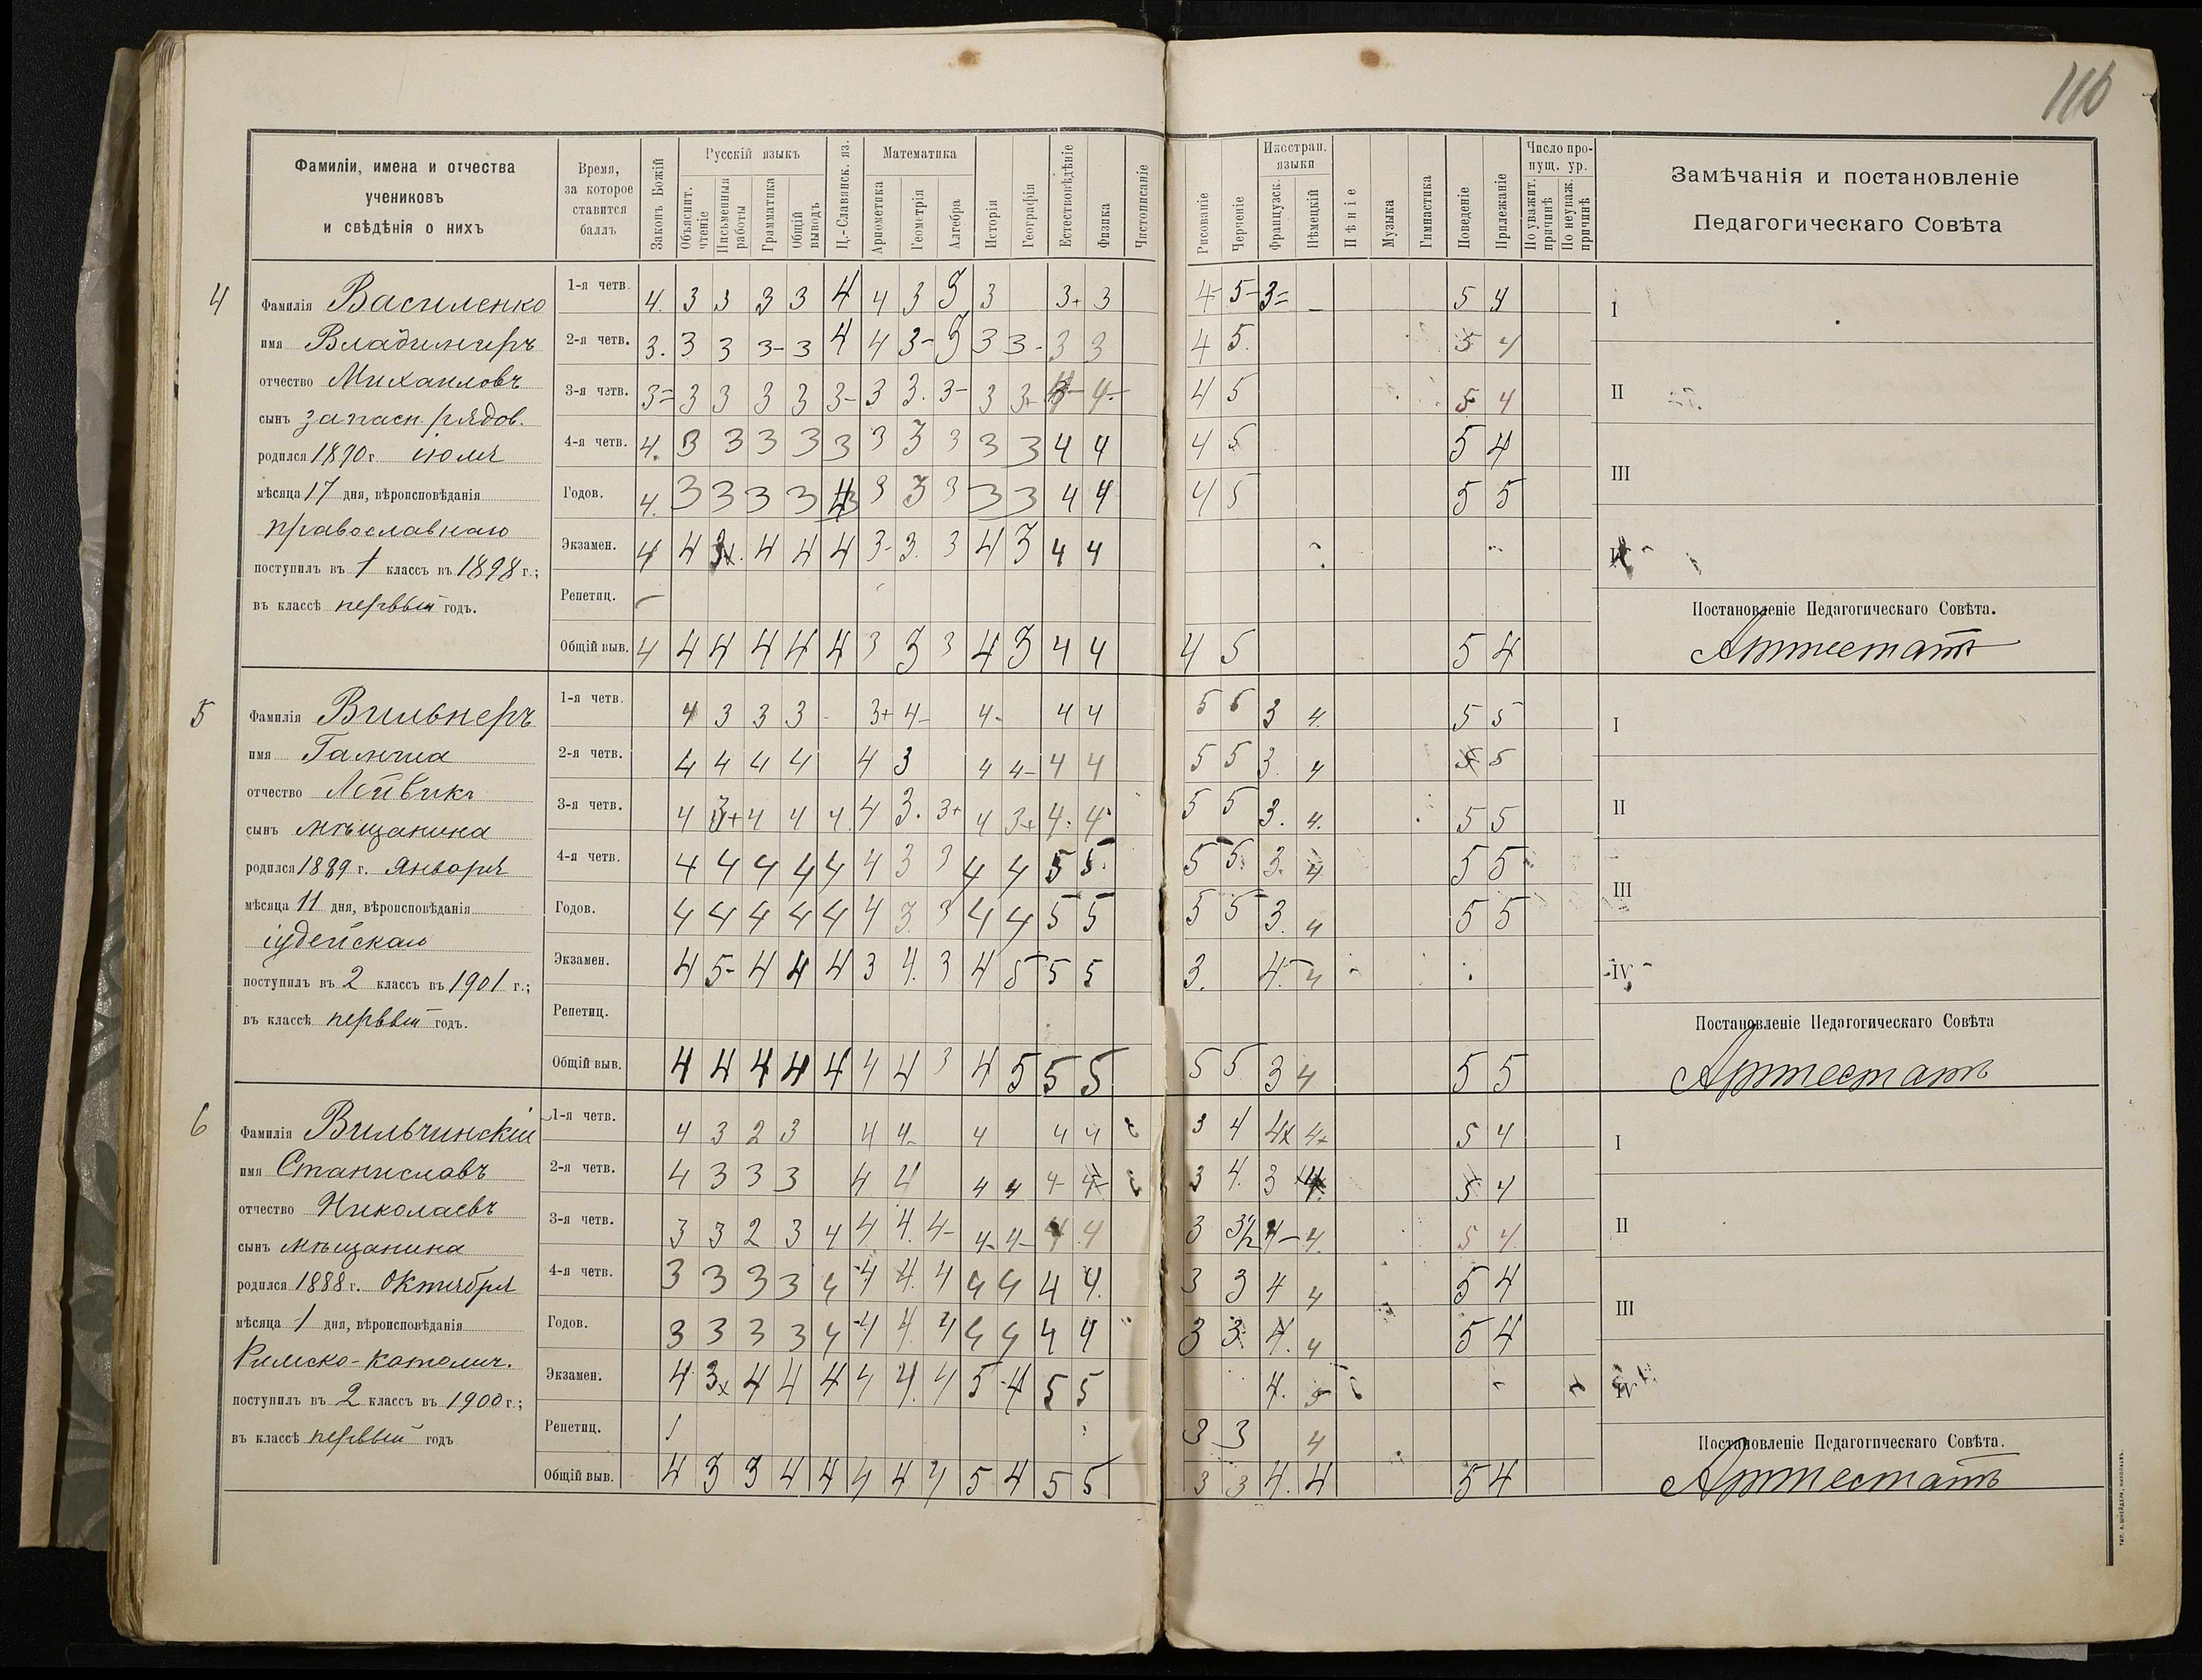 116
Фамиліи, имена и отчества
учениковъ
и свѣдѣнія о нихъ
Время,
за которое
ставится
баллъ
Законъ Божій
Русскій языкъ
Объяснит. чтеніе
Письменныя работы
Грамматика
Общій выводъ
Ц.-Славянск. яз.
Математика
Ариѳметика
Геометрія
Алгебра
Исторія
Географія
Естествовѣдѣніе
Физика
Чистописаніе
Рисованіе
Черченіе
Иностран. языки
Французск.
Нѣмецкій
Пѣніе
Музыка
Гимнастика
Поведеніе
Прилежаніе
Число пропущ. ур.
По уважит. причинѣ
По неуваж. причинѣ
Замѣчанія и постановленіе
Педагогическаго Совѣта
4
Фамилія Василенко
имя Владимиръ
отчество Михаиловъ
сынъ запасн. рядов.
родился 1890 г. іюля
мѣсяца 17 дня, вѣроисповѣданія
православнаго
поступилъ въ 1 классъ въ 1898 г.;
въ классѣ первый годъ.
1-я четв. 4. 3 3 3 3 4 4 3 3 3 3+ 3 4- 5- 3= 5 4
2-я четв. 3. 3 3 3- 3 4 4 3- 3 3 3- 3 3 4 5. 5 4
3-я четв. 3= 3 3 3 3 3- 3 3. 3- 3 3+ 4- 4 5 5 4
4-я четв. 4. 3 3 3 3 3 3 3 3 3 3 4 4 4 5 5 4
Годов. 4. 3 3 3 3 3 3 3 3 3 3 4 4 4 5 5 5
Экзамен. 4 4 3х. 4 4 4 3- 3. 3 4 3 4 4
Репетиц.
Общій выв. 4 4 4 4 4 4 3 3 3 4 3 4 4 4 5 5 4
I
II
III
IV
Постановленіе Педагогическаго Совѣта.
Аттестатъ
5
Фамилія Вильнеръ
имя
отчество Лейвикъ
сынъ мѣщанина
родился 1889 г. Января
мѣсяца 11 дня, вѣроисповѣданія
іудейскаго
поступилъ въ 2 классъ въ 1901 г.;
въ классѣ первый годъ.
1-я четв. 4 3 3 3 3+ 4- 4- 4 4 5 5 3 4. 5 5
2-я четв. 4 4 4 4 4 3 4 4- 4 4 5 5 3. 4 5 5
3-я четв. 4 3+ 4 4 4. 4 3. 3+ 4 3+ 4. 4. 5 5 3. 4. 5 5
4-я четв. 4 4 4 4 4 4 3 3 4 4 5 5. 5 5. 3. 4 5 5
Годов. 4 4 4 4 4 4 3. 3 4 4 5 5 5 5 3. 4 5 5
Экзамен. 4 5- 4 4 4 3 4. 3 4 5 5 5 3. 4. 4
Репетиц.
Общій выв. 4 4 4 4 4 4 4 3 4 5 5 5 5 5 3 4 5 5
I
II
III
IV
Постановленіе Педагогическаго Совѣта
Аттестатъ
6
Фамилія Вильчинскій
имя Станиславъ
отчество Николаевъ
сынъ мѣщанина
родился 1888 г. Октября
мѣсяца 1 дня, вѣроисповѣданія
Римско-католич.
поступилъ въ 2 классъ въ 1900 г.;
въ классѣ первый годъ
1-я четв. 4 3 2 3 4 4- 4 4 4 3 4 4х 4+ 5 4
2-я четв. 4 3 3 3 4 4 4 4 4- 4- 3 4. 3 4. 5 4
3-я четв. 3 3 2 3 4 4 4. 4- 4- 4- 4 4 3 3½ 4- 4. 5 4
4-я четв. 3 3 3 3 4 4 4. 4 4 4 4 4. 3 3 4 4 5 4
Годов. 3 3 3 3 4 4 4. 4 4 4 4 4 3 3 4. 4 5 4
Экзамен. 4 3х 4 4 4 4 4. 4 5 4 5 5 4.
Репетиц. 3 3 4
Общій выв. 4 3 3 4 4 4 4 4 5 4 5 5 3 3 4. 4 5 4
I
II
III
IV
Постановленіе Педагогическаго Совѣта.
Аттестатъ